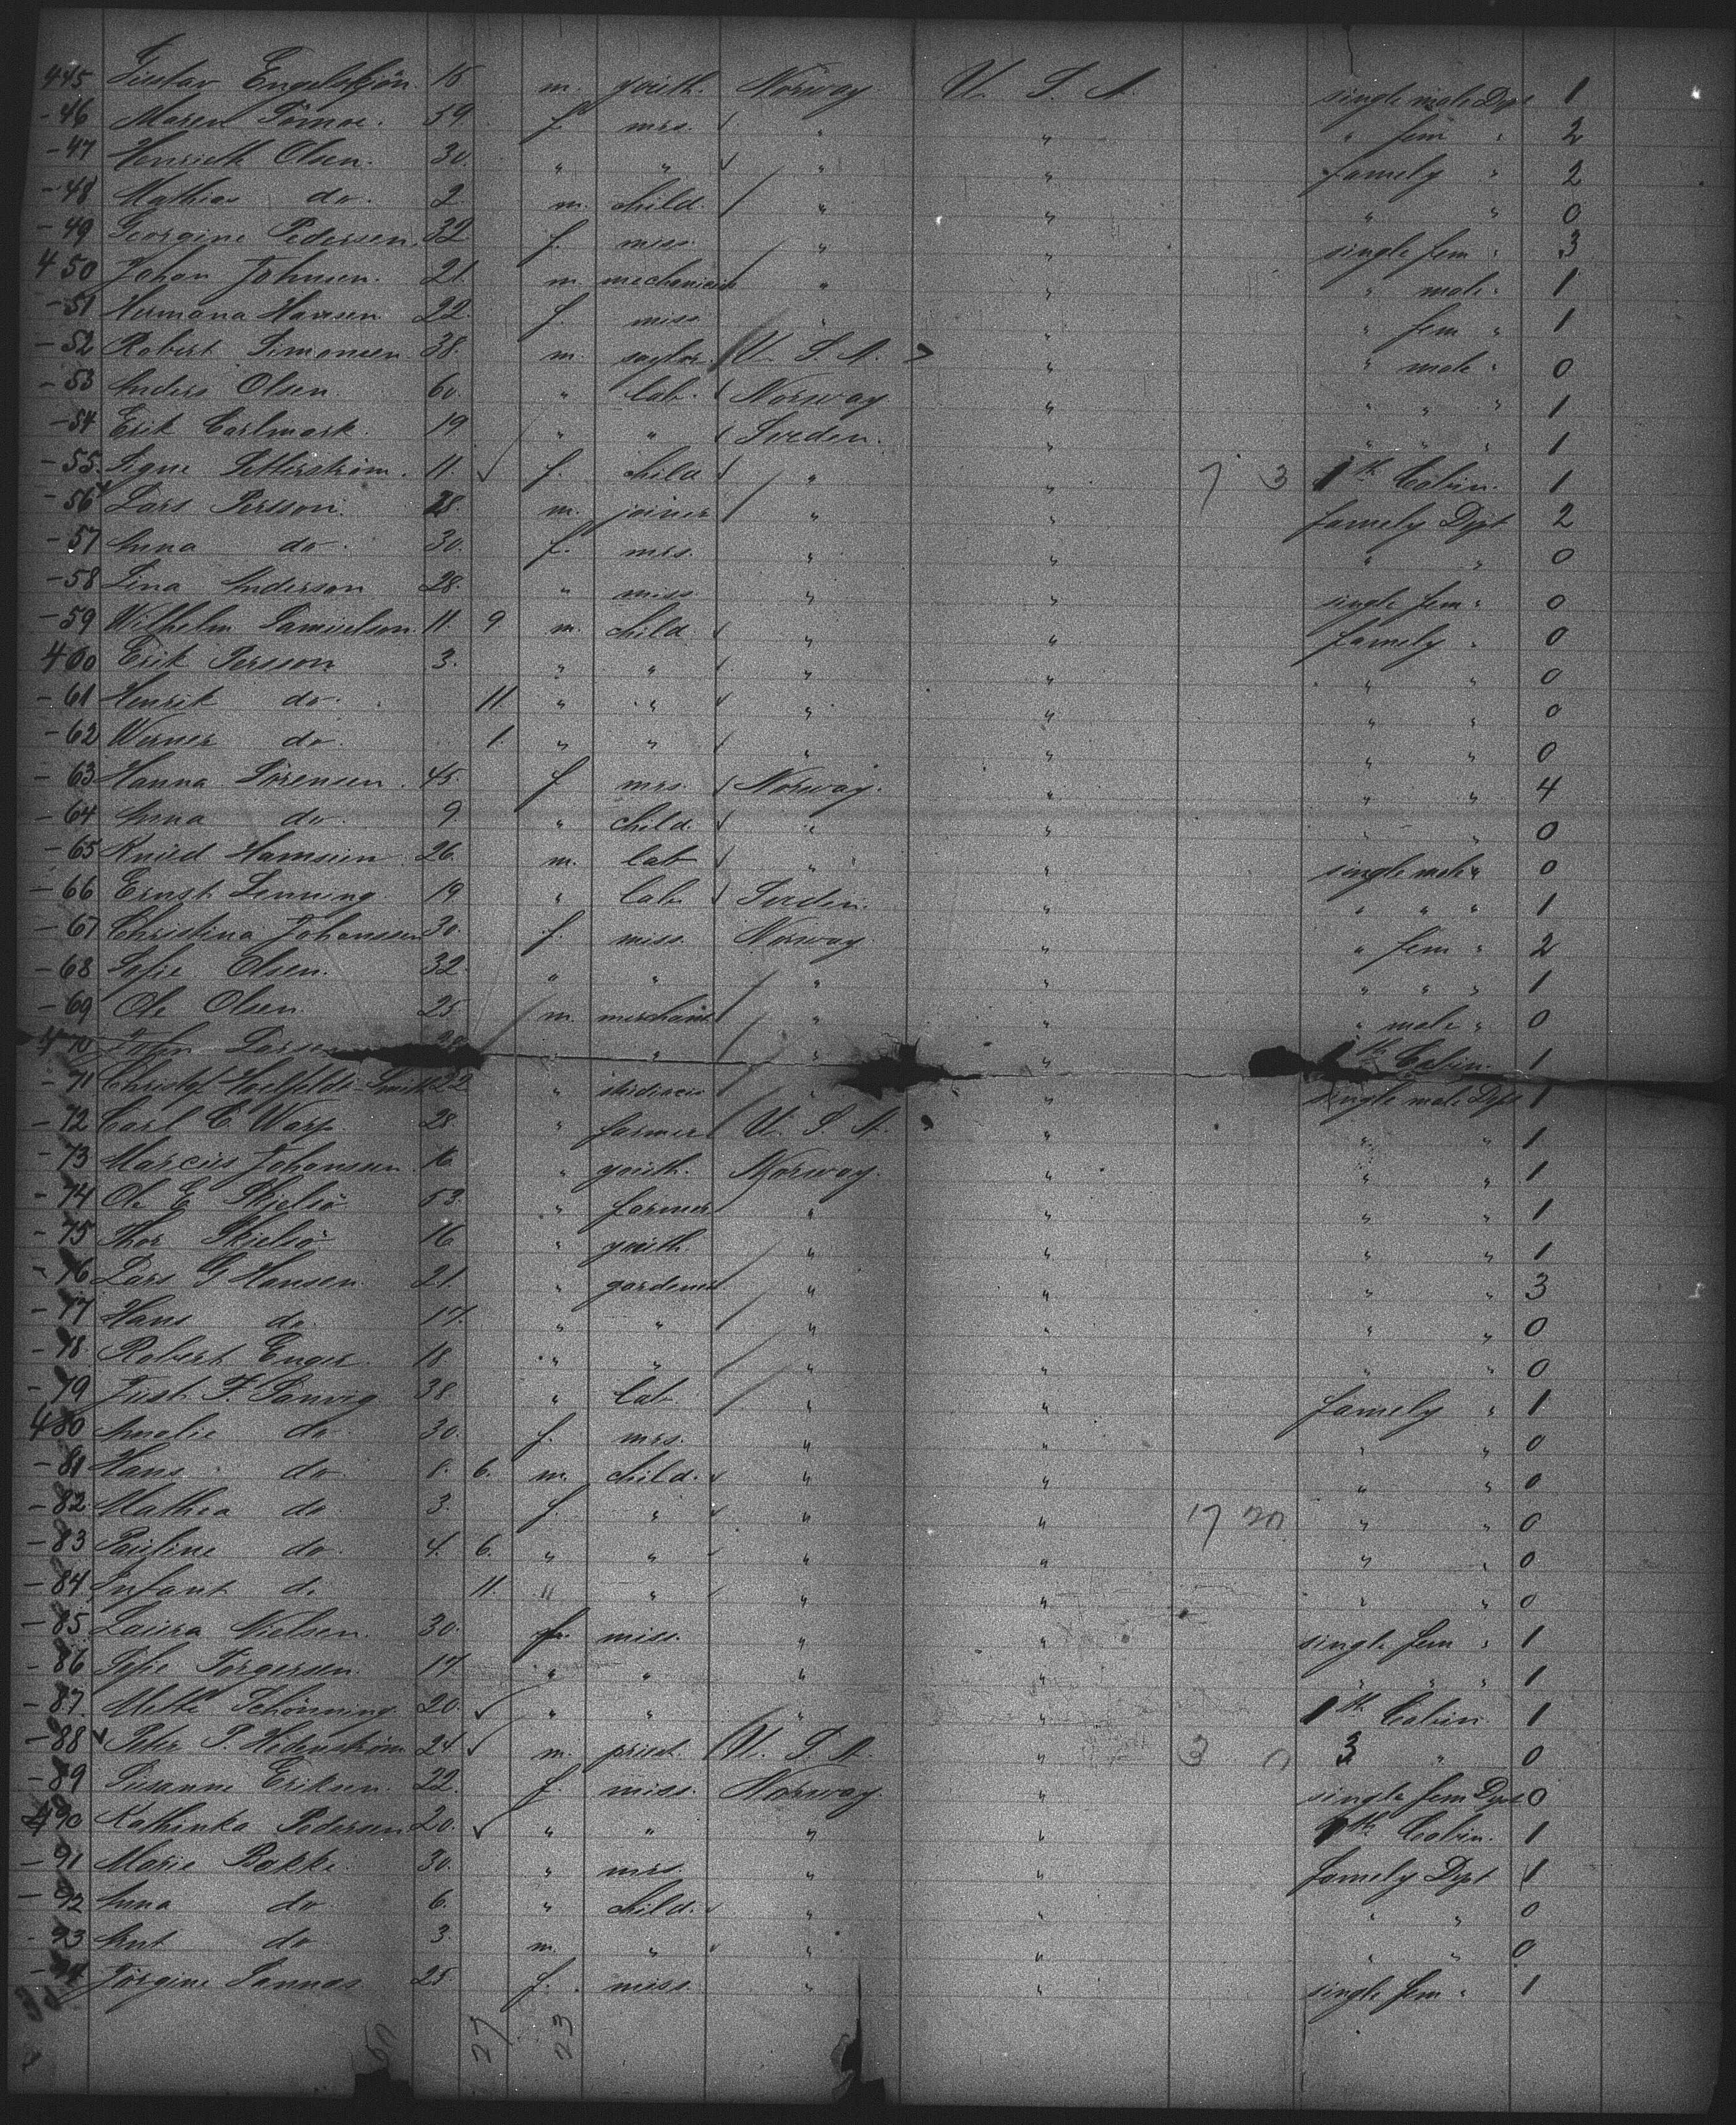 445 Gustav Engelskjön. 15 m. youth. Norway U. S. A. single male Dept 1
-46 Maren Tömoe. 59 f. mrs. " " " fem " 2
-47 Henrieth Olsen. 30. " " " " famely " 2
-48 Mathias do. 2. m. child. " " " " 0
-49 Georgine Pedersen. 32 f. miss. " " single fem " 3
450 Johan Johnsen. 21. m. mechanician " " " male " 1
-51 Hermana Hansen 22. f. miss. " " " fem " 1
-52 Robert Simonsen. 38. m. saylor. U. S. A. " " male " 0
-53 Anders Olsen. 60. " lab. Norway " " " " 1
-54 Erik Carlmark. 19 " " Sveden. " " " " 1
-55. Signe Setterström. 11. f. child " " 7 3 1th Cabin. 1
-56 Lars Persson. 28 m. joiner " " famely Dept 2
-57 Anna do. 30. f. mrs. " " " " 0
-58 Lina Anderson 28. " miss " " single fem " 0
-59 Wilhelm Samuelson. 11. 9 m. child " " famely " 0
460 Erik Persson 3. " " " " " " 0
-61 Henrik do. 11 " " " " " " 0
-62 Werner do. 1. " " " " " " 0
-63 Hanna Sörensen. 45. f mrs. Norway. " " " 4
-64 Anna do. 9 " child. " " " " 0
-65 Knud Hamsun 26. m. lab " " single male " 0
-66 Ernst Lenning 19 " lab. Sveden. " " " " 1
-67 Christina Johanssen 30. f. miss. Norway. " " fem " 2
-68 Sofie Olsen. 32. " " " " " " " 1
-69 Ole Olsen 25. m. merchant " " " male " 0
470 John Larsen " " " " 1th Cabin. 1
-71 Christof 22 " " " single male Dept 1
-72 Carl E. Warp 28. " farmer U. S. A. " " " 1
-73 Marcus Johanssen. 16 " youth. Norway. " " " 1
-74 Ole E. Skjelsö 53. " farmer " " " " 1
-75 Thor Skjelsö 16 " youth. " " " " 1
-76 Lars G Hansen. 21. " gardener " " " " 3
-77 Hans do. 17. " " " " " " 0
-78. Robert Enger. 18. " " " " " " 0
-79 Just F. Sanvig 38. " lab " " famely " 1
480 Amalie do 30. f. mrs. " " " " 0
-81 Hans do 8. 6. m. child. " " " " 0
-82 Mathea do 3. f. " " " 17 20 " " 0
-83 Pauline do. 4. 6. " " " " " " 0
-84 Infant do 11. " " " " " " 0
-85 Laura Nielsen. 30. f. miss. " " single fem " 1
-86 Sofie Torgersen. 17. " " " " " " " 1
-87. Mette Schönning. 20. " " " " 1th Cabin. 1
-88 Peter P. Hidenström 24 m. priest. U. S. A. " 3 0 3 " 0
-89 Susanne Eriksen. 22. f. miss. Norway " single fem Dept 0
490 Kathinka Pedersen 20. " " " " 1th Cabin. 1
-91 Marie Bakke. 30. " mrs. " " famely Dept 1
-92 Anna do 6. " child. " " " " 0
-93 do 3. m. " " " " " 0
-94 Jörgine Sannas 25. f. miss. " " single fem " 1
50 27 23